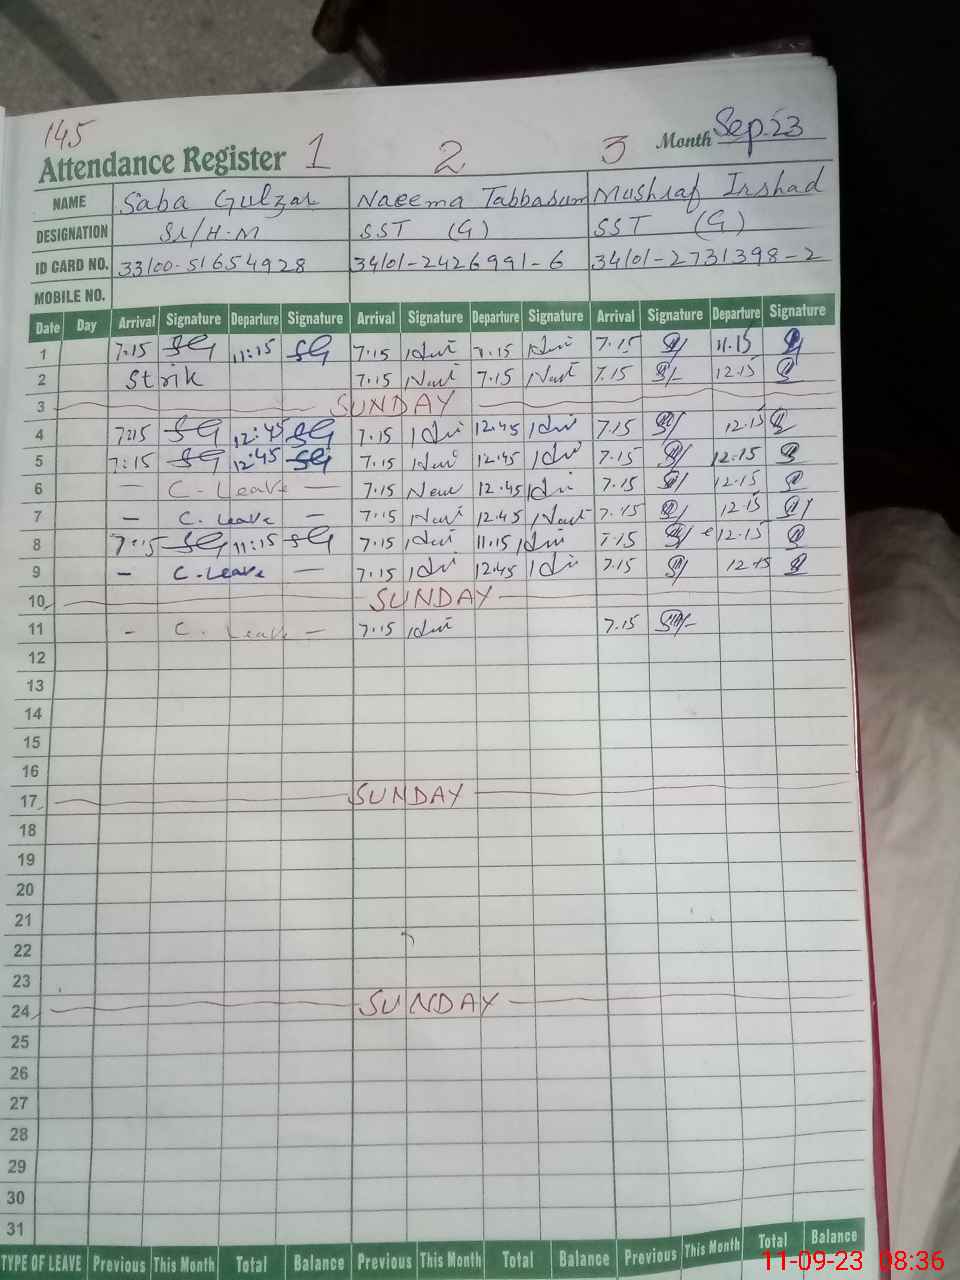 145
Attendance Register 1 2 3 Month Sep. 23
NAME Saba Gulzar Naeema Tabbasum Mushraf Irshad
DESIGNATION Sr/H.M SST (G) SST (G)
ID CARD NO. 33100-51654928 34101-2426991-6 34101-2731398-2
MOBILE NO.
Date Day Arrival Signature Departure Signature Arrival Signature Departure Signature Arrival Signature Departure Signature
1 7:15 SG 11:15 SG 7.15 7.15 11.15
2 Strik 7.15 7.15 7.15 12.15
3 SUNDAY
4 7:15 SG 12:45 SG 7.15 12.45 7.15 12.15
5 7:15 SG 12:45 SG 7.15 12.45 7.15 12.15
6 — C. Leave — 7.15 12.45 7.15 12.15
7 — C. Leave — 7.15 12.45 7.15 12.15
8 7:15 SG 11:15 SG 7.15 11.15 7.15 12.15
9 — C. Leave — 7.15 12.45 7.15 12.15
10 SUNDAY
11 — C. Leave — 7.15 7.15
12
13
14
15
16
17 SUNDAY
18
19
20
21
22
23
24 SUNDAY
25
26
27
28
29
30
31
TYPE OF LEAVE Previous This Month Total Balance Previous This Month Total Balance Previous This Month Total Balance
11-09-23 08:36